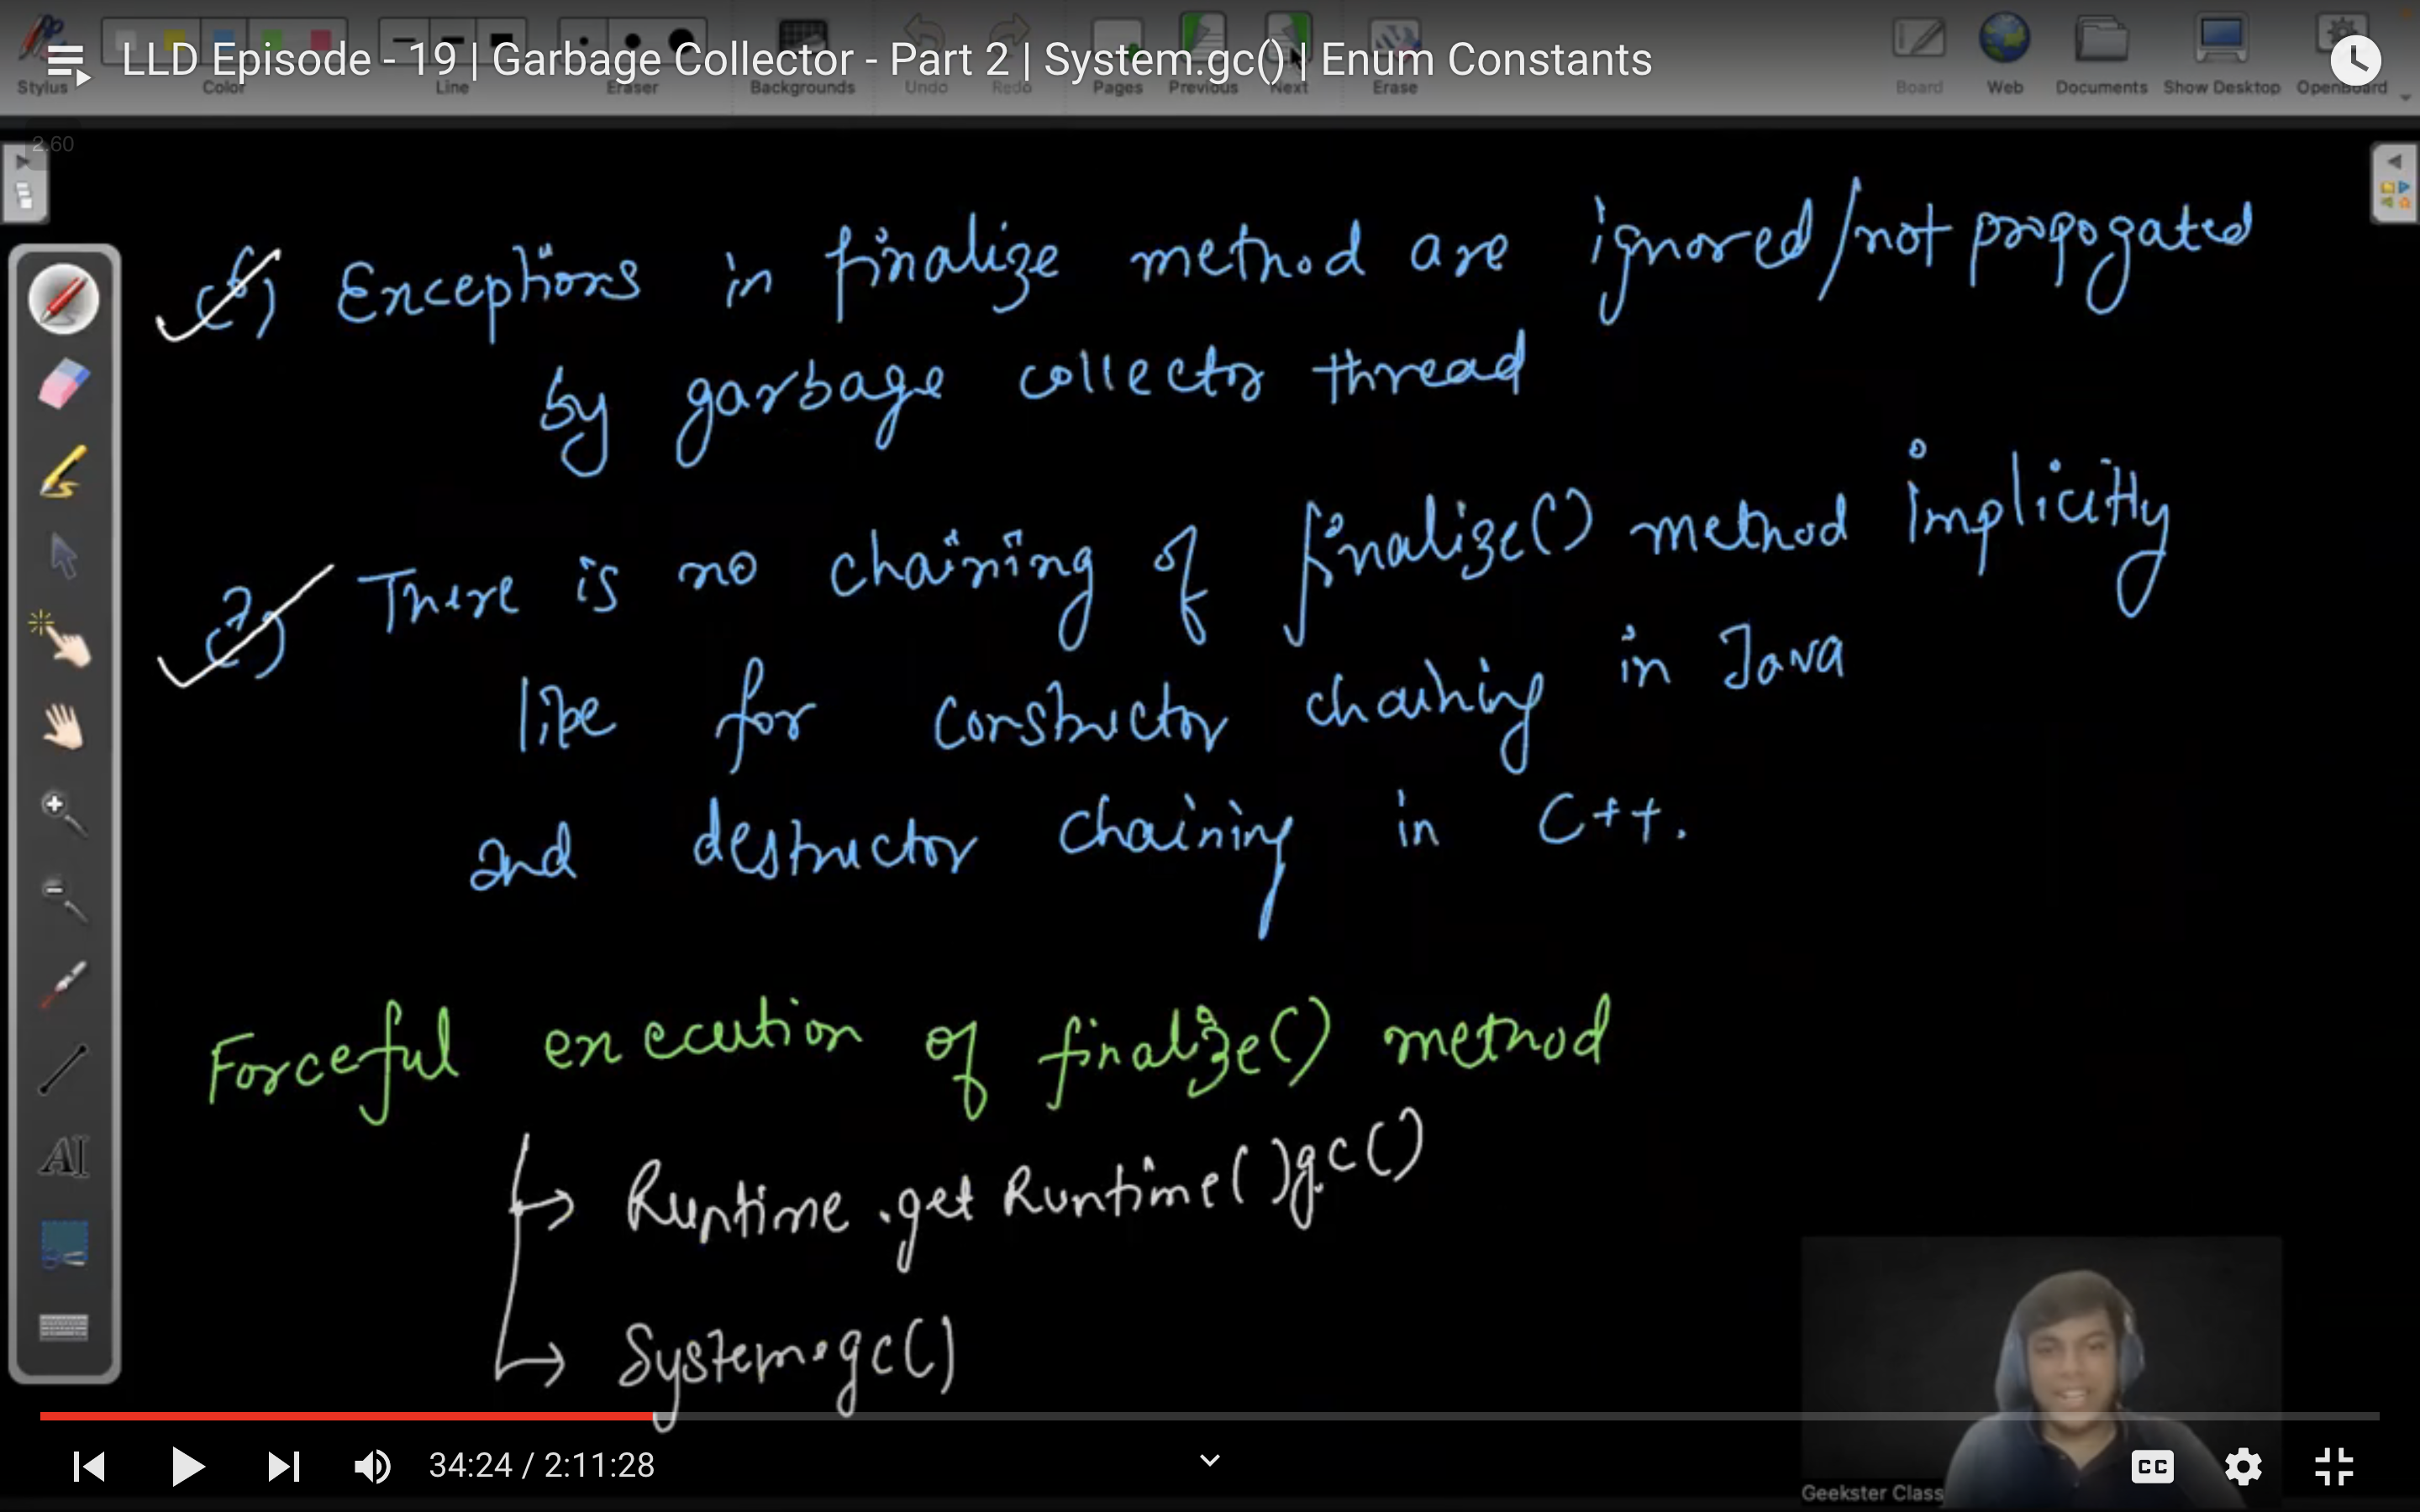 LLD Episode - 19 | Garbage Collector - Part 2 | System.gc() | Enum Constants
Stylus Color Line Eraser Backgrounds Undo Redo Pages Previous Next Erase Board Web Documents Show Desktop OpenBoard
2.60
(6) Exceptions in finalize method are ignored/not propogated
by garbage collector thread
(7) There is no chaining of finalize() method implicitly
like for constructor chaining in Java
and destructor chaining in C++.
Forceful execution of finalize() method
→ Runtime.getRuntime().gc()
→ System.gc()
AI
34:24 / 2:11:28
CC
Geekster Class